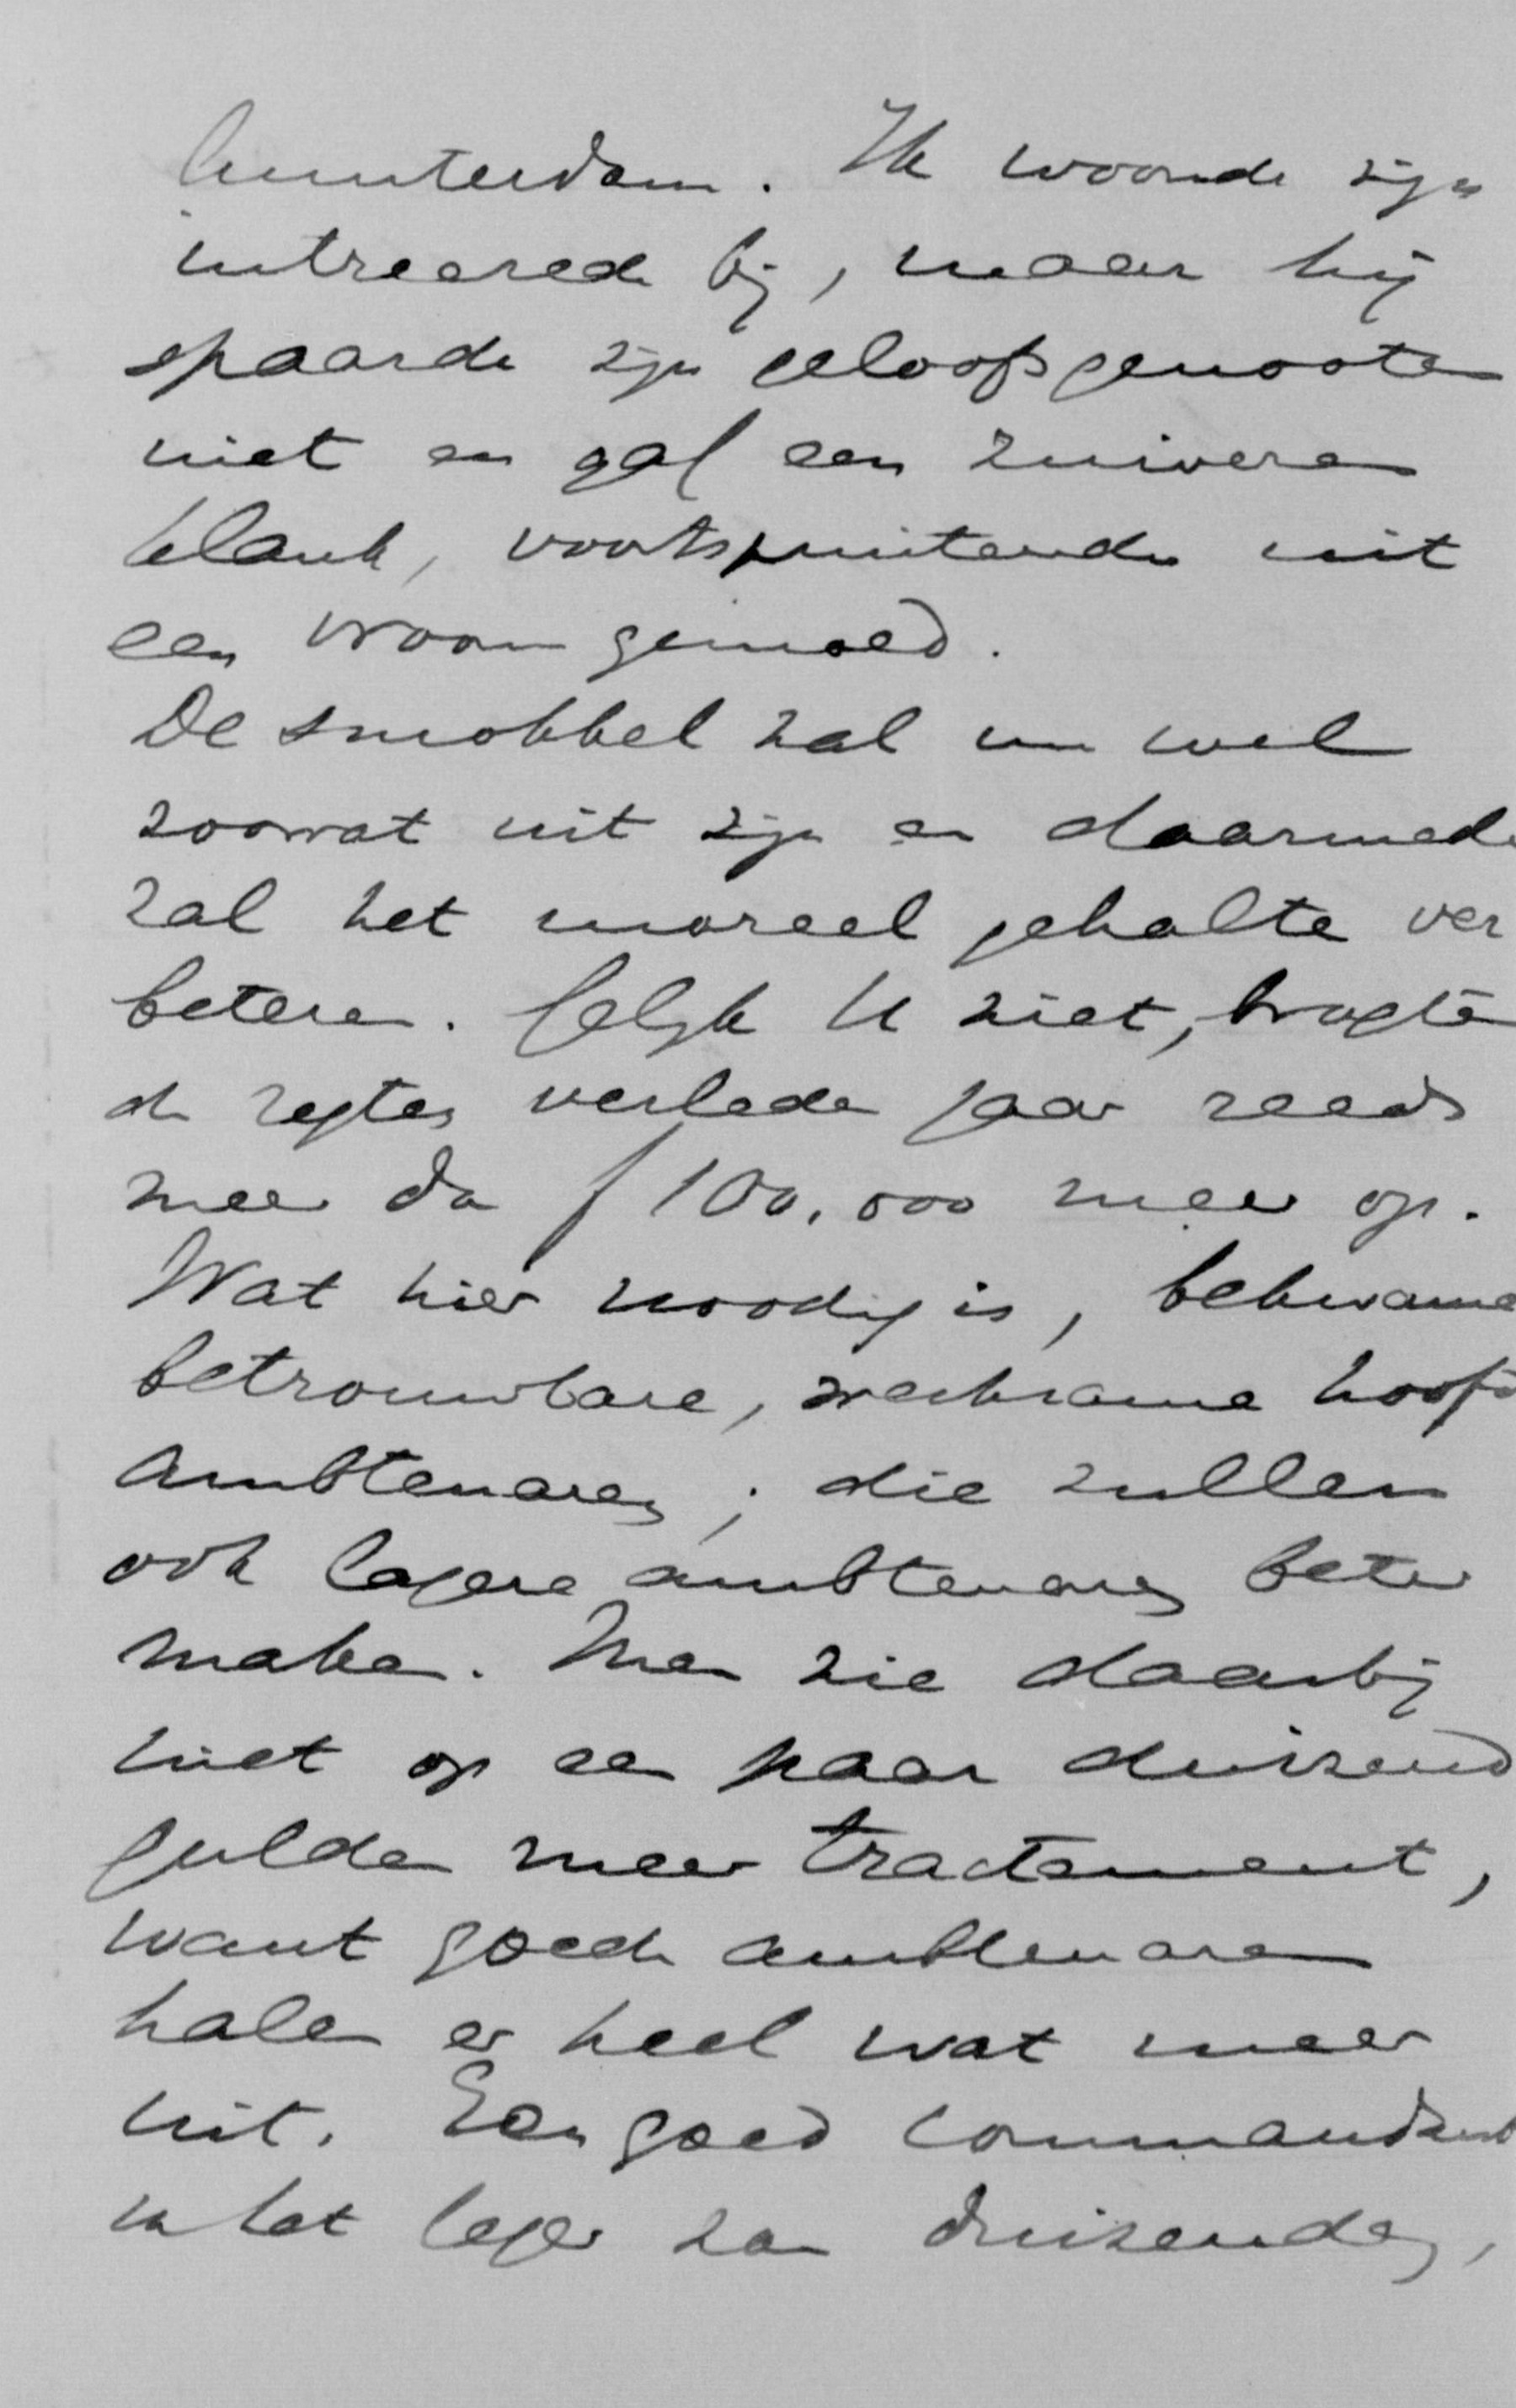 Amsterdam. Ik woonde zijn
intreerede bij, maar hij
spaarde zijn geloofsgenooten
niet en gaf een zuiveren
klank, voortspruitende uit
een vroom gemoed.
De smokkel zal nu wel
zoowat uit zijn en daarmede
zal het moreel gehalte ver
beteren. Gelijk U ziet, bragten
de regten verleden jaar reeds
meer dan f 100.000 meer op.
Wat hier noodig is, bekwame
betrouwbare, werkzame hoofd
ambtenaren; die zullen
ook lagere ambtenaren beter
maken. Men zie daarbij
niet op een paar duizend
gulden meer tractement,
want goede ambtenaren
halen er heel wat meer
uit. Een goed commandant
in het leger kan duizenden,